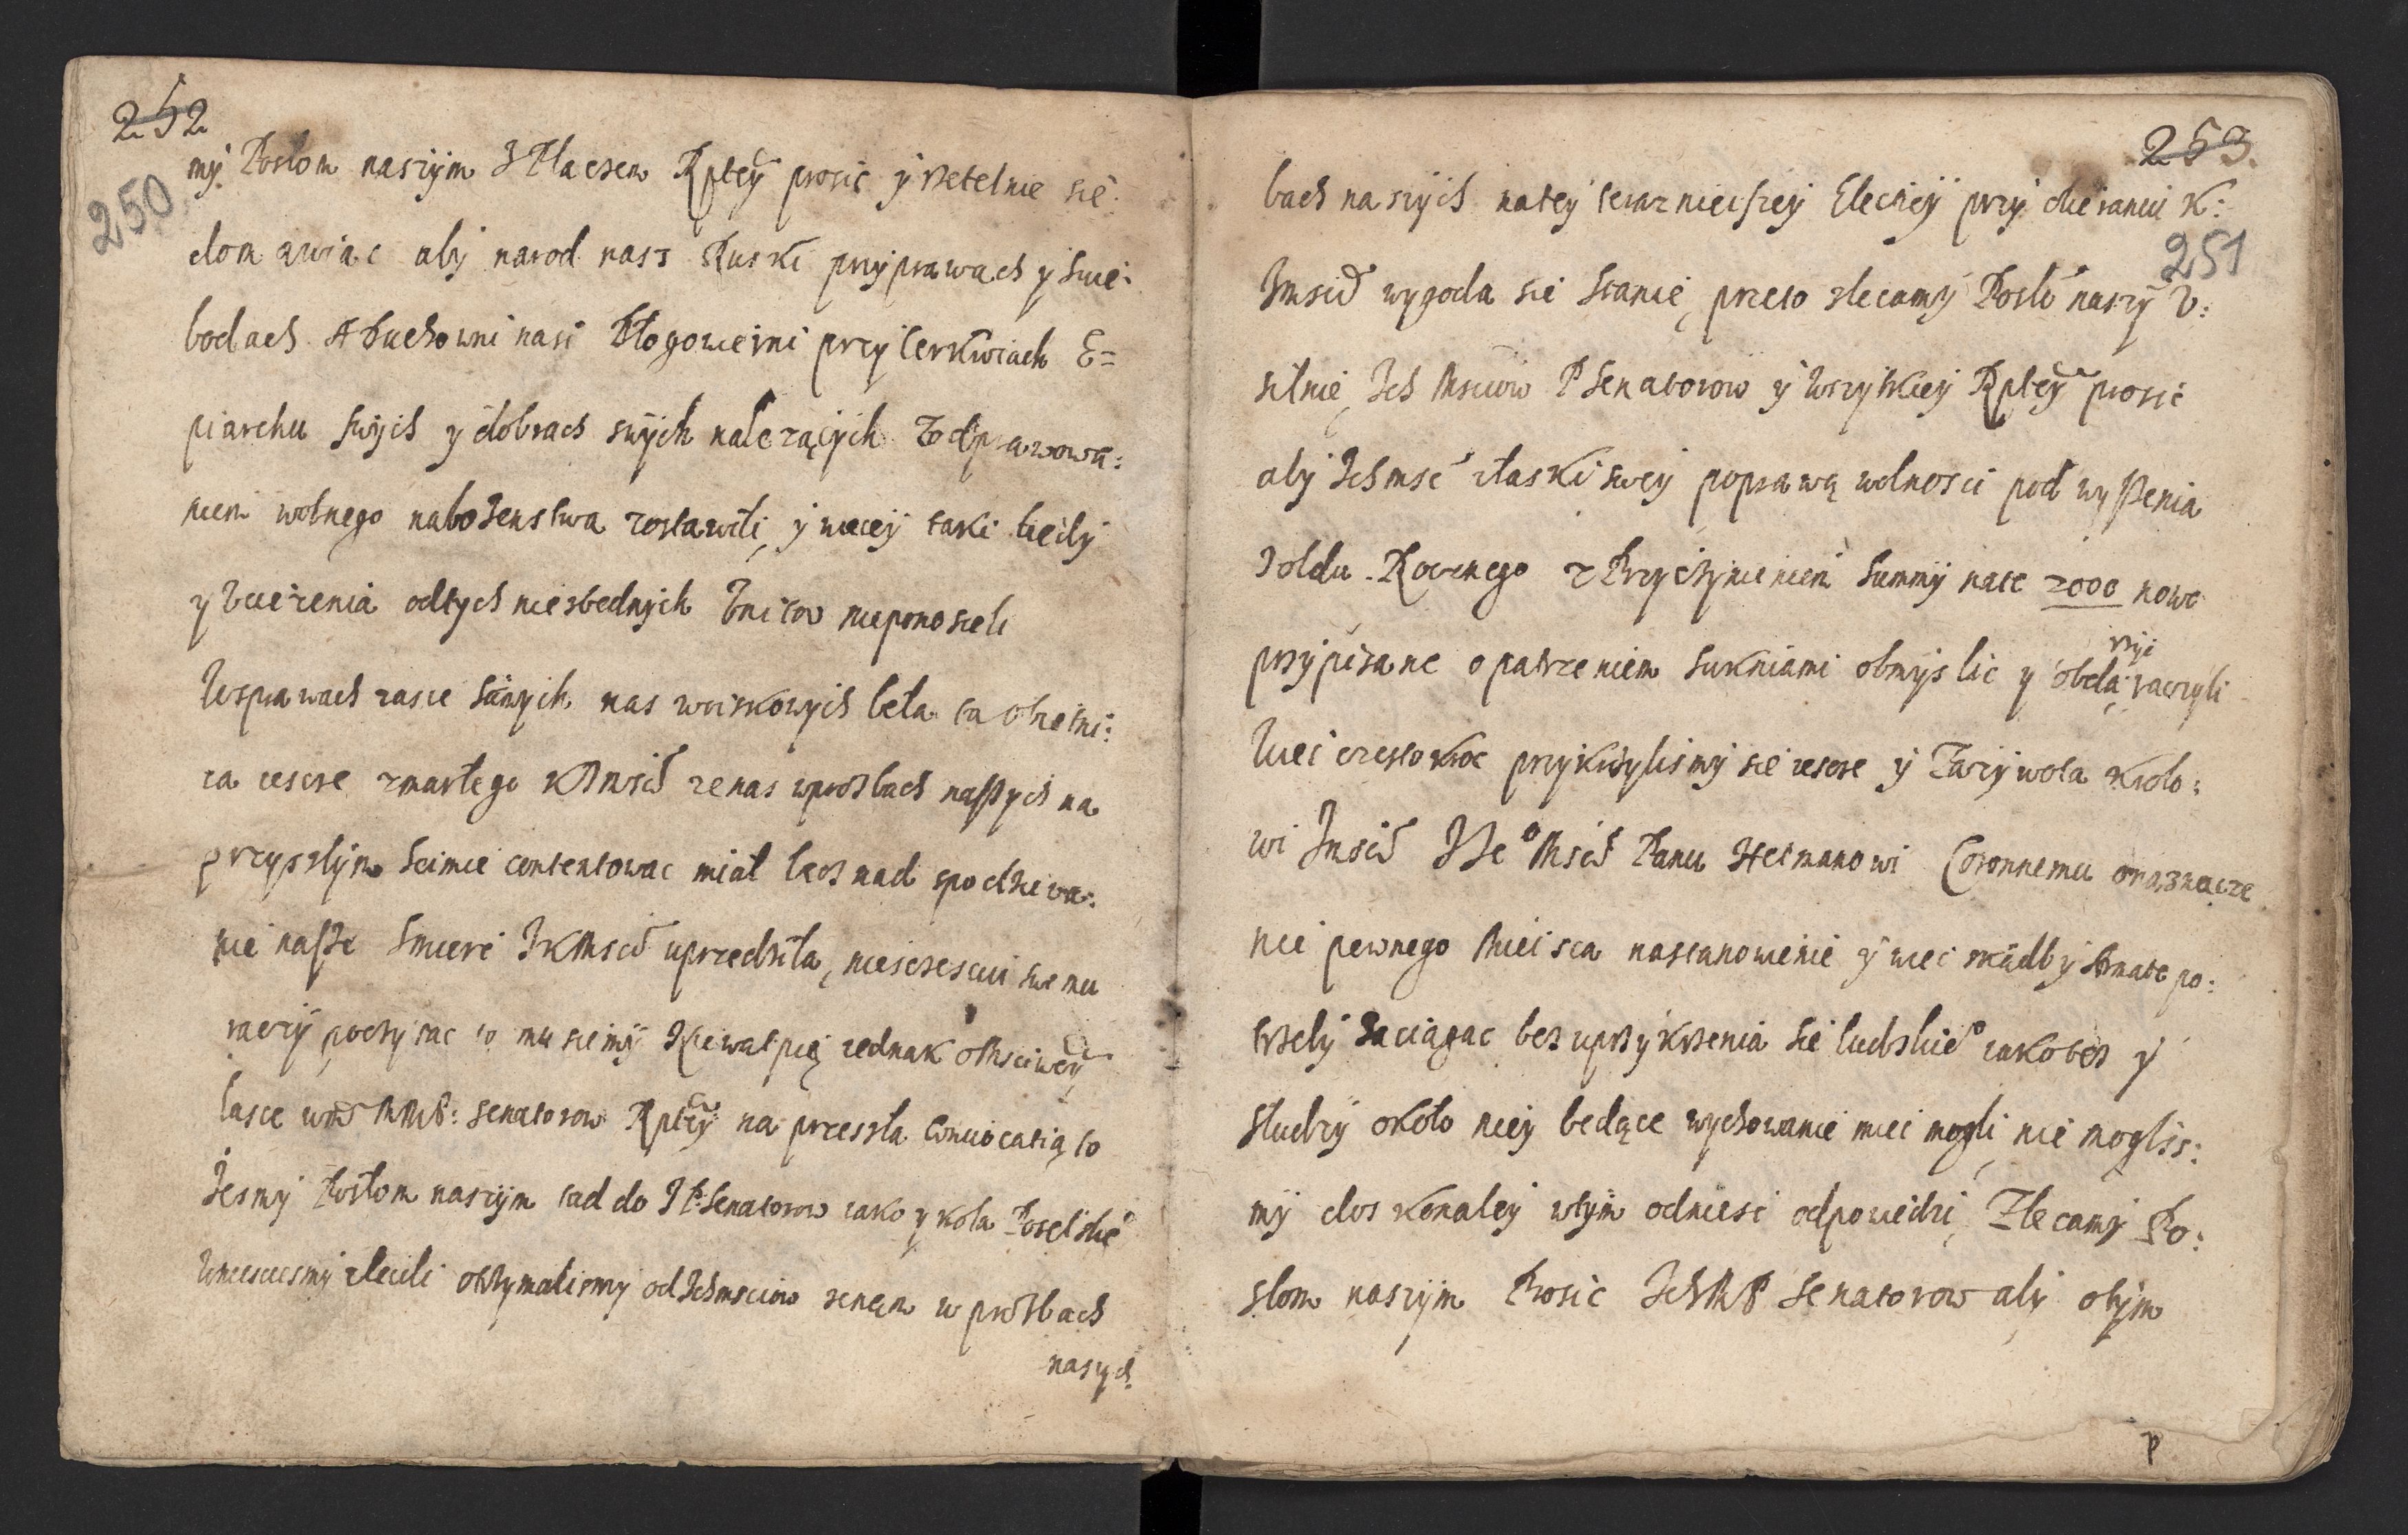 252
250
my Posłom naszÿm z Płaczem Rpltey prosić y rzetelnie się
domawiac aby narod nasz Ruski przyprawach y swie:
bodach A Duchowni nasi Błogowierni przy Cerkwiach E=
piarchu swych y dobrach swych należących Z odprawowa:
niem wolnego nabożenstwa zostawili, y wiecey taki biedy
y Vcieżenia odtych niezbednych Vnitow nieponosieli
Wsprawach zasie samych nas woiskowych beła ta obietni:
ca iescze zmarłego KJmsci ze nas wprozbach naszych na
przyszłym Seimie contentowac miał lecz nad spodziewa:
nie nasze Smierc JKMsci uprzedziła, niesczesciu swemu
raczy poczytac to musiemy Niewątpią iednak oMsciwey
łasce MMP: senatorow Rpltey na przeszła Convocatią to
zesmy Posłom naszym tad do JP: Senatorow iako y koła Poselskie
wniescesmy zlecili otrzymalismy od Ichmsciow że nam w prozbach
naszych
253.
251
bach naszych natey teraznieiszey Elecÿey przy obieraniu K:
Jmsci wygoda się stanie, przeto zlecamy Posło naszy V:
silnie, Ich Msciow P Senatorow y wszytkiey Rpltey prosic
aby Ichmsc złaski swey poprawą wolnosci pod wyszenia
żołdu Rocznego z Przyczynieniem summy nate 2000 nowo
przypisane opatrzeniem sukniami obmyslic y obda raczyli
rzyi
Wiec czestokroc przykrzylismy się iescze y Zażywota Krolo:
wi Jmsci JJe Msci Panu Hetmanowi Coronnemu oraznacze
nie pewnego Mieisca nastanowienie y wiec skądby Armate po:
trzeby zaciągac bez uprzykrzenia sie ludzkiego iako też y
słudzy około niey będące wychowanie miec mogli, nie moglis:
my dos konałey wtym odniesc odpowiedzi, Zlecamy Po:
słom naszym Prosic IchMP Senatorow aby otym
P